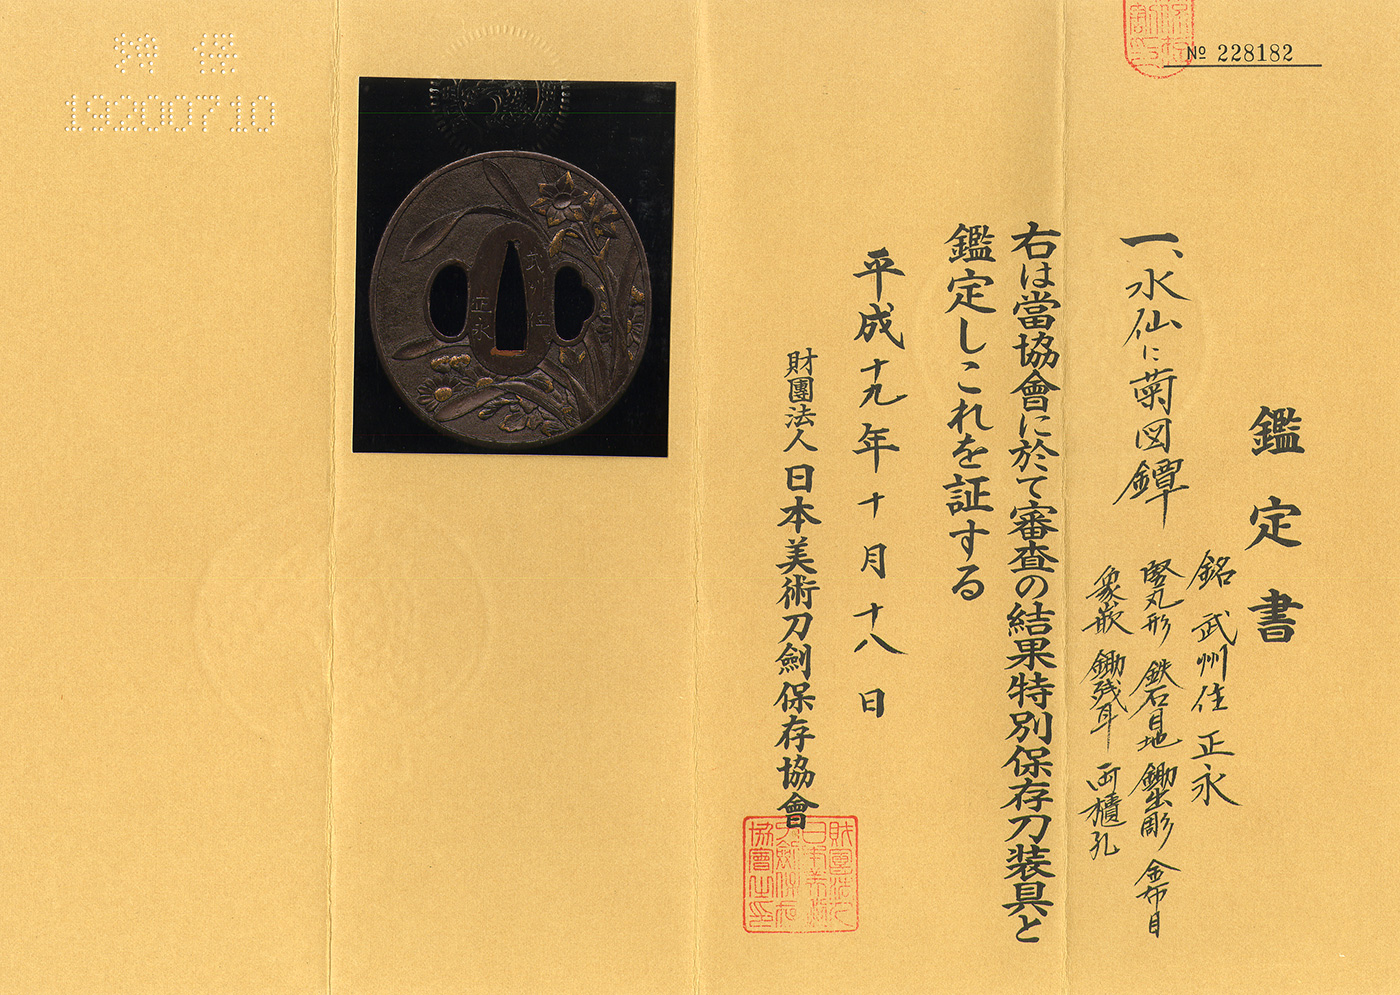 № 228182
鑑定書
一、水仙に菊図鐔
銘 武州住正永
竪丸形 鉄石目地 鋤出彫 金布目
象嵌 鋤残耳 両櫃孔
右は當協會に於て審査の結果特別保存刀装具と
鑑定しこれを証する
平成十九年十月十八日
財團法人日本美術刀劍保存協會
財團法人
日本美術
刀劍保存
協會之印
武州住
正永
特保
19200710